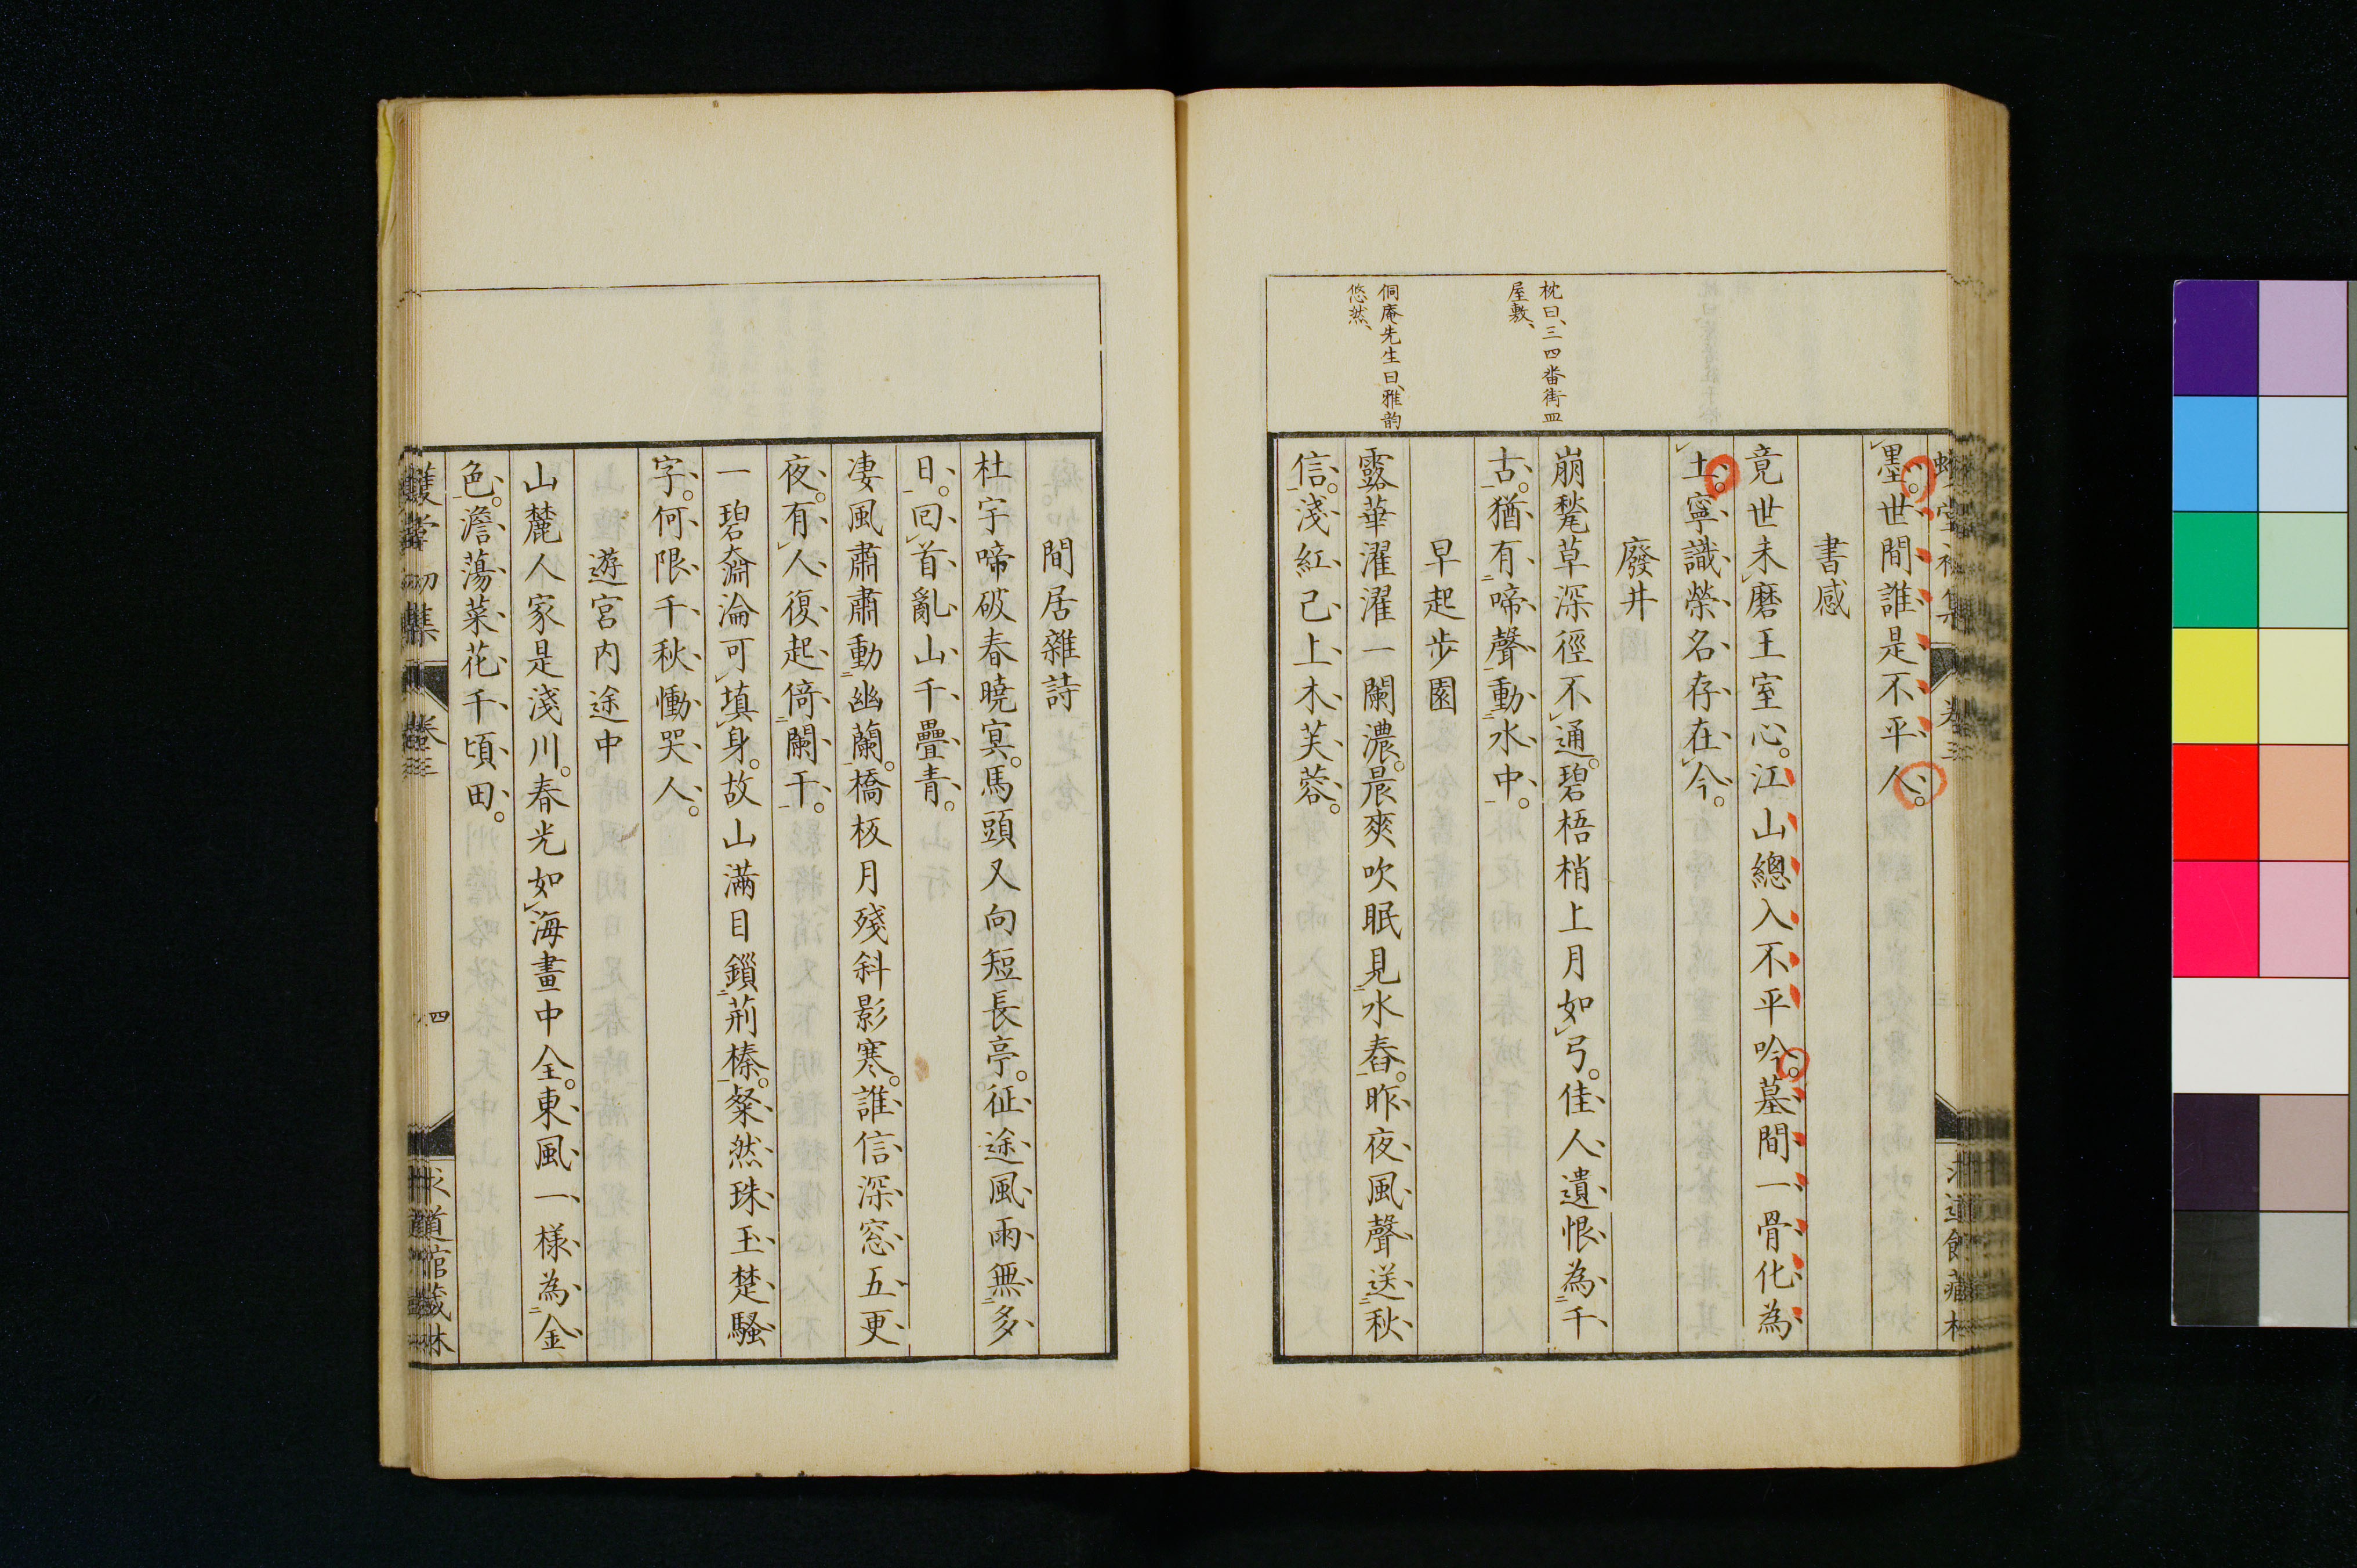 墨。世間誰是不平人。
書感
竟世未磨王室心。江山總入不平吟。墓間一骨化為
土。寧識榮名存在今。
廢井
崩甃草深徑不通。碧梧梢上月如弓。佳人遺恨為千
古。猶有啼聲動水中。
早起步園
露華濯濯一闌濃。晨爽吹眠見水舂。昨夜風聲送秋
信。淺紅已上木芙蓉。
枕曰、三四番街皿
屋敷、
侗庵先生曰、雅韵
悠然、
間居雜詩
杜宇啼破春曉冥。馬頭又向短長亭。征途風雨無多
日。回首亂山千疊青。
凄風肅肅動幽蘭。橋板月殘斜影寒。誰信深窓五更
夜。有人復起倚闌干。
一碧奫淪可填身。故山滿目鎖荊榛。粲然珠玉楚騷
字。何限千秋慟哭人。
遊宮内途中
山麓人家是淺川。春光如海畫中全。東風一樣為金
色。澹蕩菜花千頃田。
初集
卷三
四
求道館藏梓